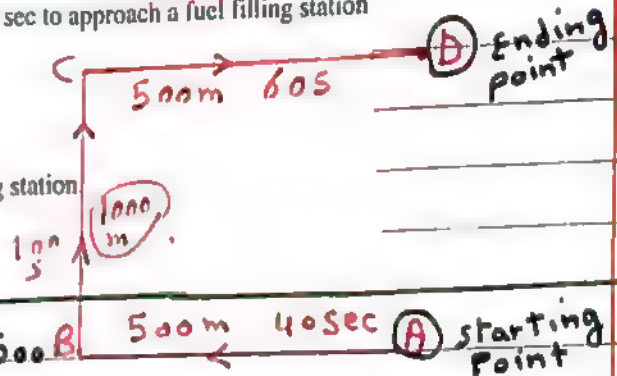 sec to approach a fuel filling station
C
D Ending
point
500m 60s
g station
1000
m
100
s
500 B 500m 40sec A starting
Point